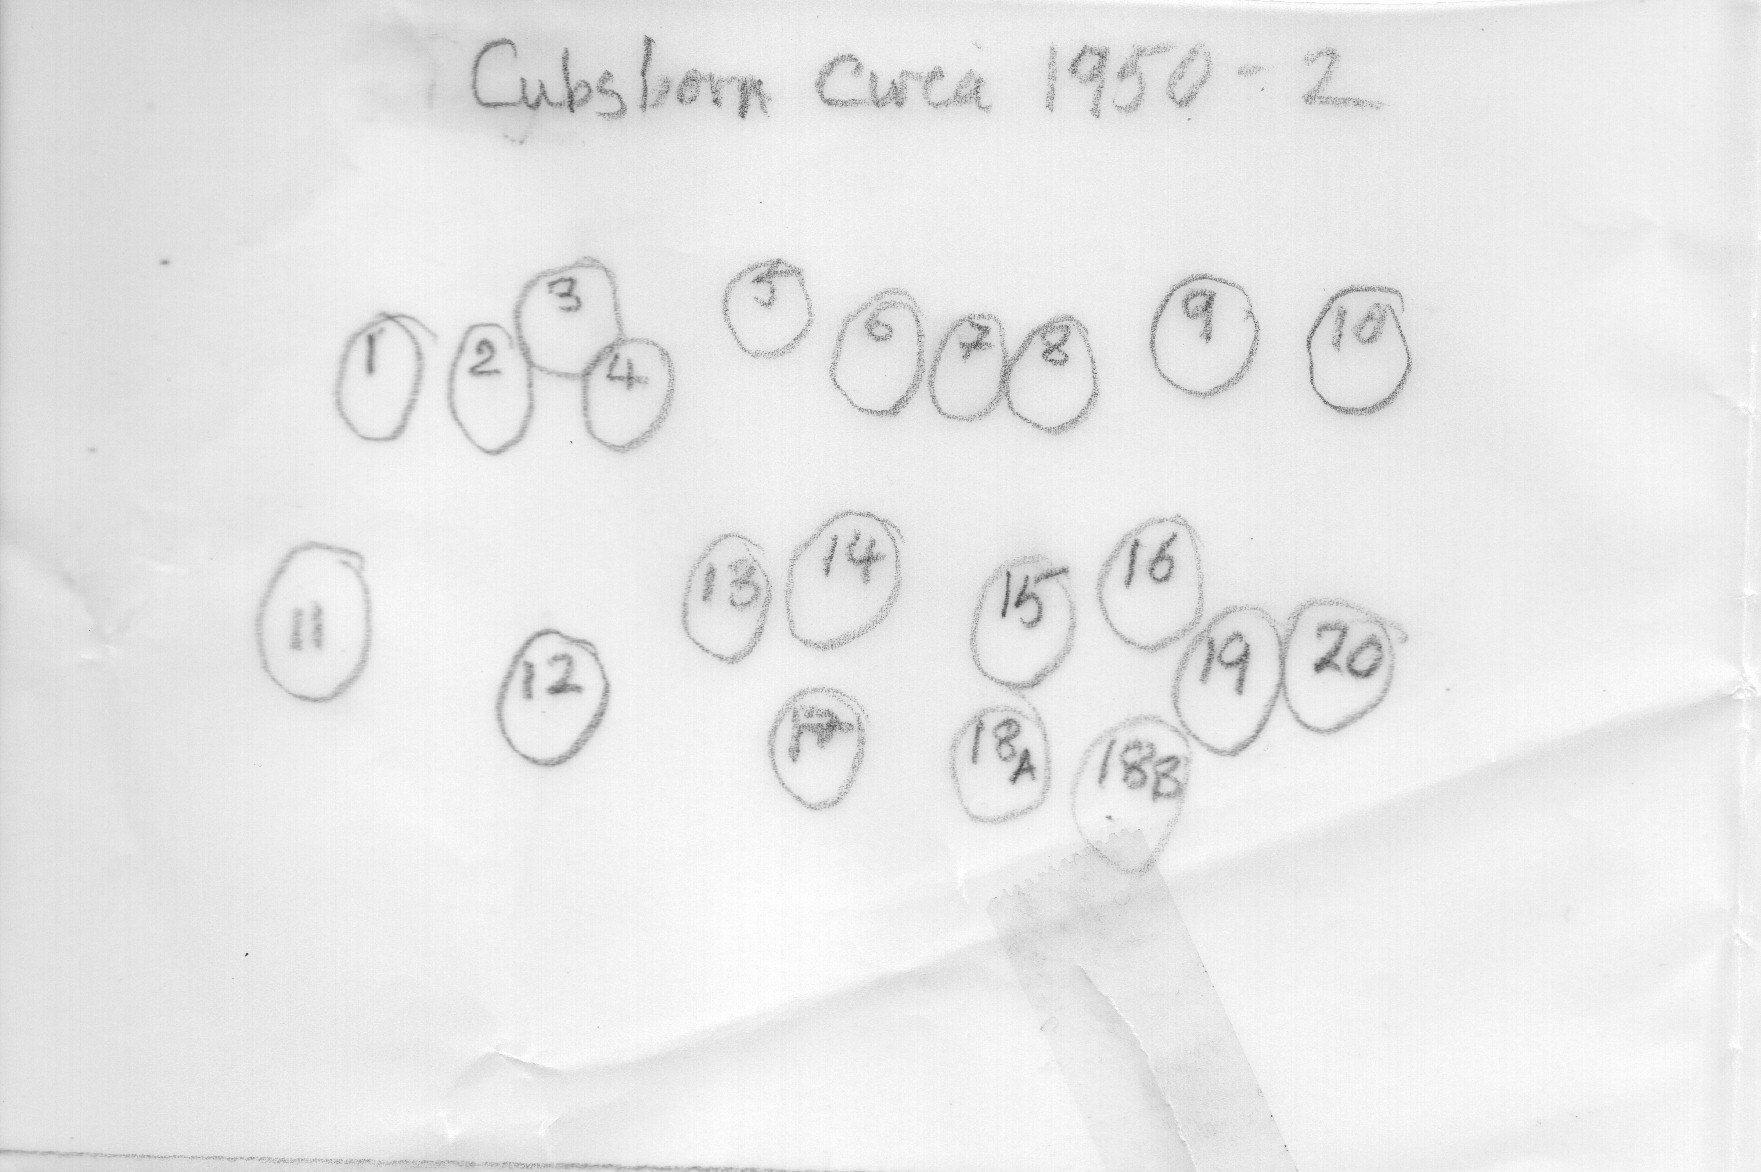 Cubs born Circa 1950-2
3 5
1 2 4 6 7 8 9 10
11 12 13 14 15 16
17 18A 18B 19 20